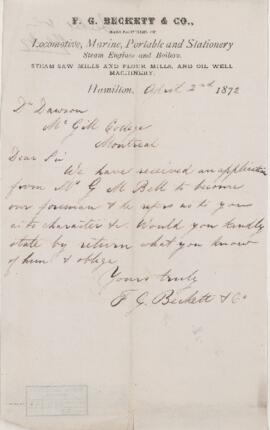 F. G. BECKETT & CO.,
MANUFACTURERS OF
Locomotive, Marine, Portable and Stationery
Steam Engines and Boilers.
STEAM SAW MILLS AND FLOUR MILLS, AND OIL WELL
MACHINERY.
Hamilton, April 2nd 1872
Dr Dawson
McGill College
Montreal
Dear Sir
We have received an application
from Mr G M Bell to become
our foreman & he refers us to you
as to character &c. Would you kindly
state by return what you know
of him & oblige
Yours truly
F G Beckett & Co